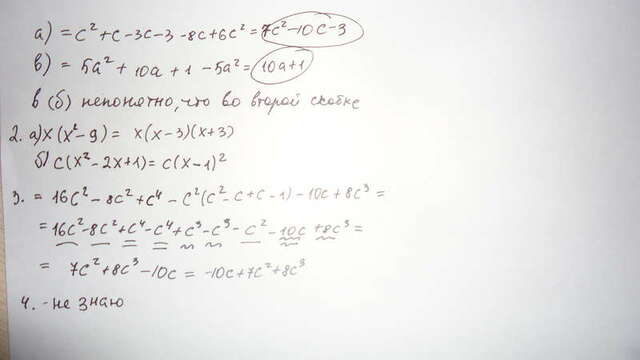 а) = c² + c - 3c - 3 - 8c + 6c² = 7c² - 10c - 3
в) = 5a² + 10a + 1 - 5a² = 10a + 1
в (б) непонятно, что во второй скобке
2. а) x(x² - 9) = x(x - 3)(x + 3)
б) c(x² - 2x + 1) = c(x - 1)²
3. = 16c² - 8c² + c⁴ - c²(c² - c + c - 1) - 10c + 8c³ =
= 16c² - 8c² + c⁴ - c⁴ + c³ - c³ - c² - 10c + 8c³ =
= 7c² + 8c³ - 10c = -10c + 7c² + 8c³
4. - не знаю